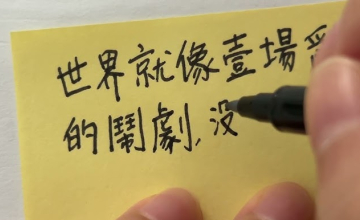 世界就像壹場
的鬧劇，没